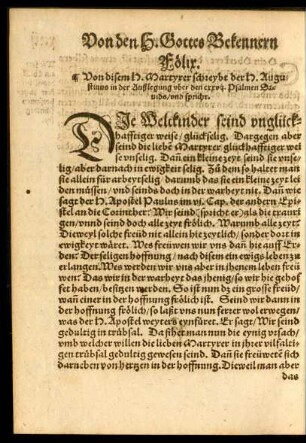 Von den H. Gottes Bekennern
Fölix.
¶ Von disem H. Martyrer schreybe der H. Augu-
stinus in der Außlegung vber den cxx Psalmen Da-
uids, vnd spricht.
DIe Weltkinder seind vnglück-
hafftiger weise / glückselig. Dargegen aber
seind die liebe Martyrer glückhafftiger wei
se vnselig. Dañ ein kleine zeyt seind sie vnse-
lig / aber darnach in ewigkeit selig. Zu dem so haltet man
sie allein für arbeytselig, darumb das sie ein kleine zeyt lei
den müssen / vnd seinds doch in der warheyt nit. Dañ wie
sagt der H. Apostel Paulus im vi. Cap. der andern Epi-
stel an die Corinther: Wir seind (spricht er) als die traurt
gen / vnnd seind doch alle zeyt frölich. Warumb alle zeyt?
Dieweyl solche freüd nit allein hie zeytlich / sonder dort in
ewigkeyt wäret. Wes freüwen wir vns dañ hie auff Er-
den? Der seligen hoffnung / nach disem ein ewigs leben zu
erlangen. Wes werden wir vns aber in jhenem leben freü
wen? Das wir in der warheyt das jhenig / so wir hie gehof
fet haben / besitzen werden. So ist nun dz ein grosse freüd /
wañ einer in der hoffnung frölich ist. Seind wir dann in
der hoffnung frölich / so laßt vns nun ferner wol erwegen /
was der H. Apostel weyters eynfüret. Er sagt / Wir seind
gedultig in trübsal. Da sihet man nun die eynig vrsach /
vmb welcher willen die lieben Martyrer in jhrer vilfalti-
gen trübsal gedultig gewesen seind. Dañ sie freüwetē sich
darneben von hertzen in der hoffnung. Dieweil man aber
das